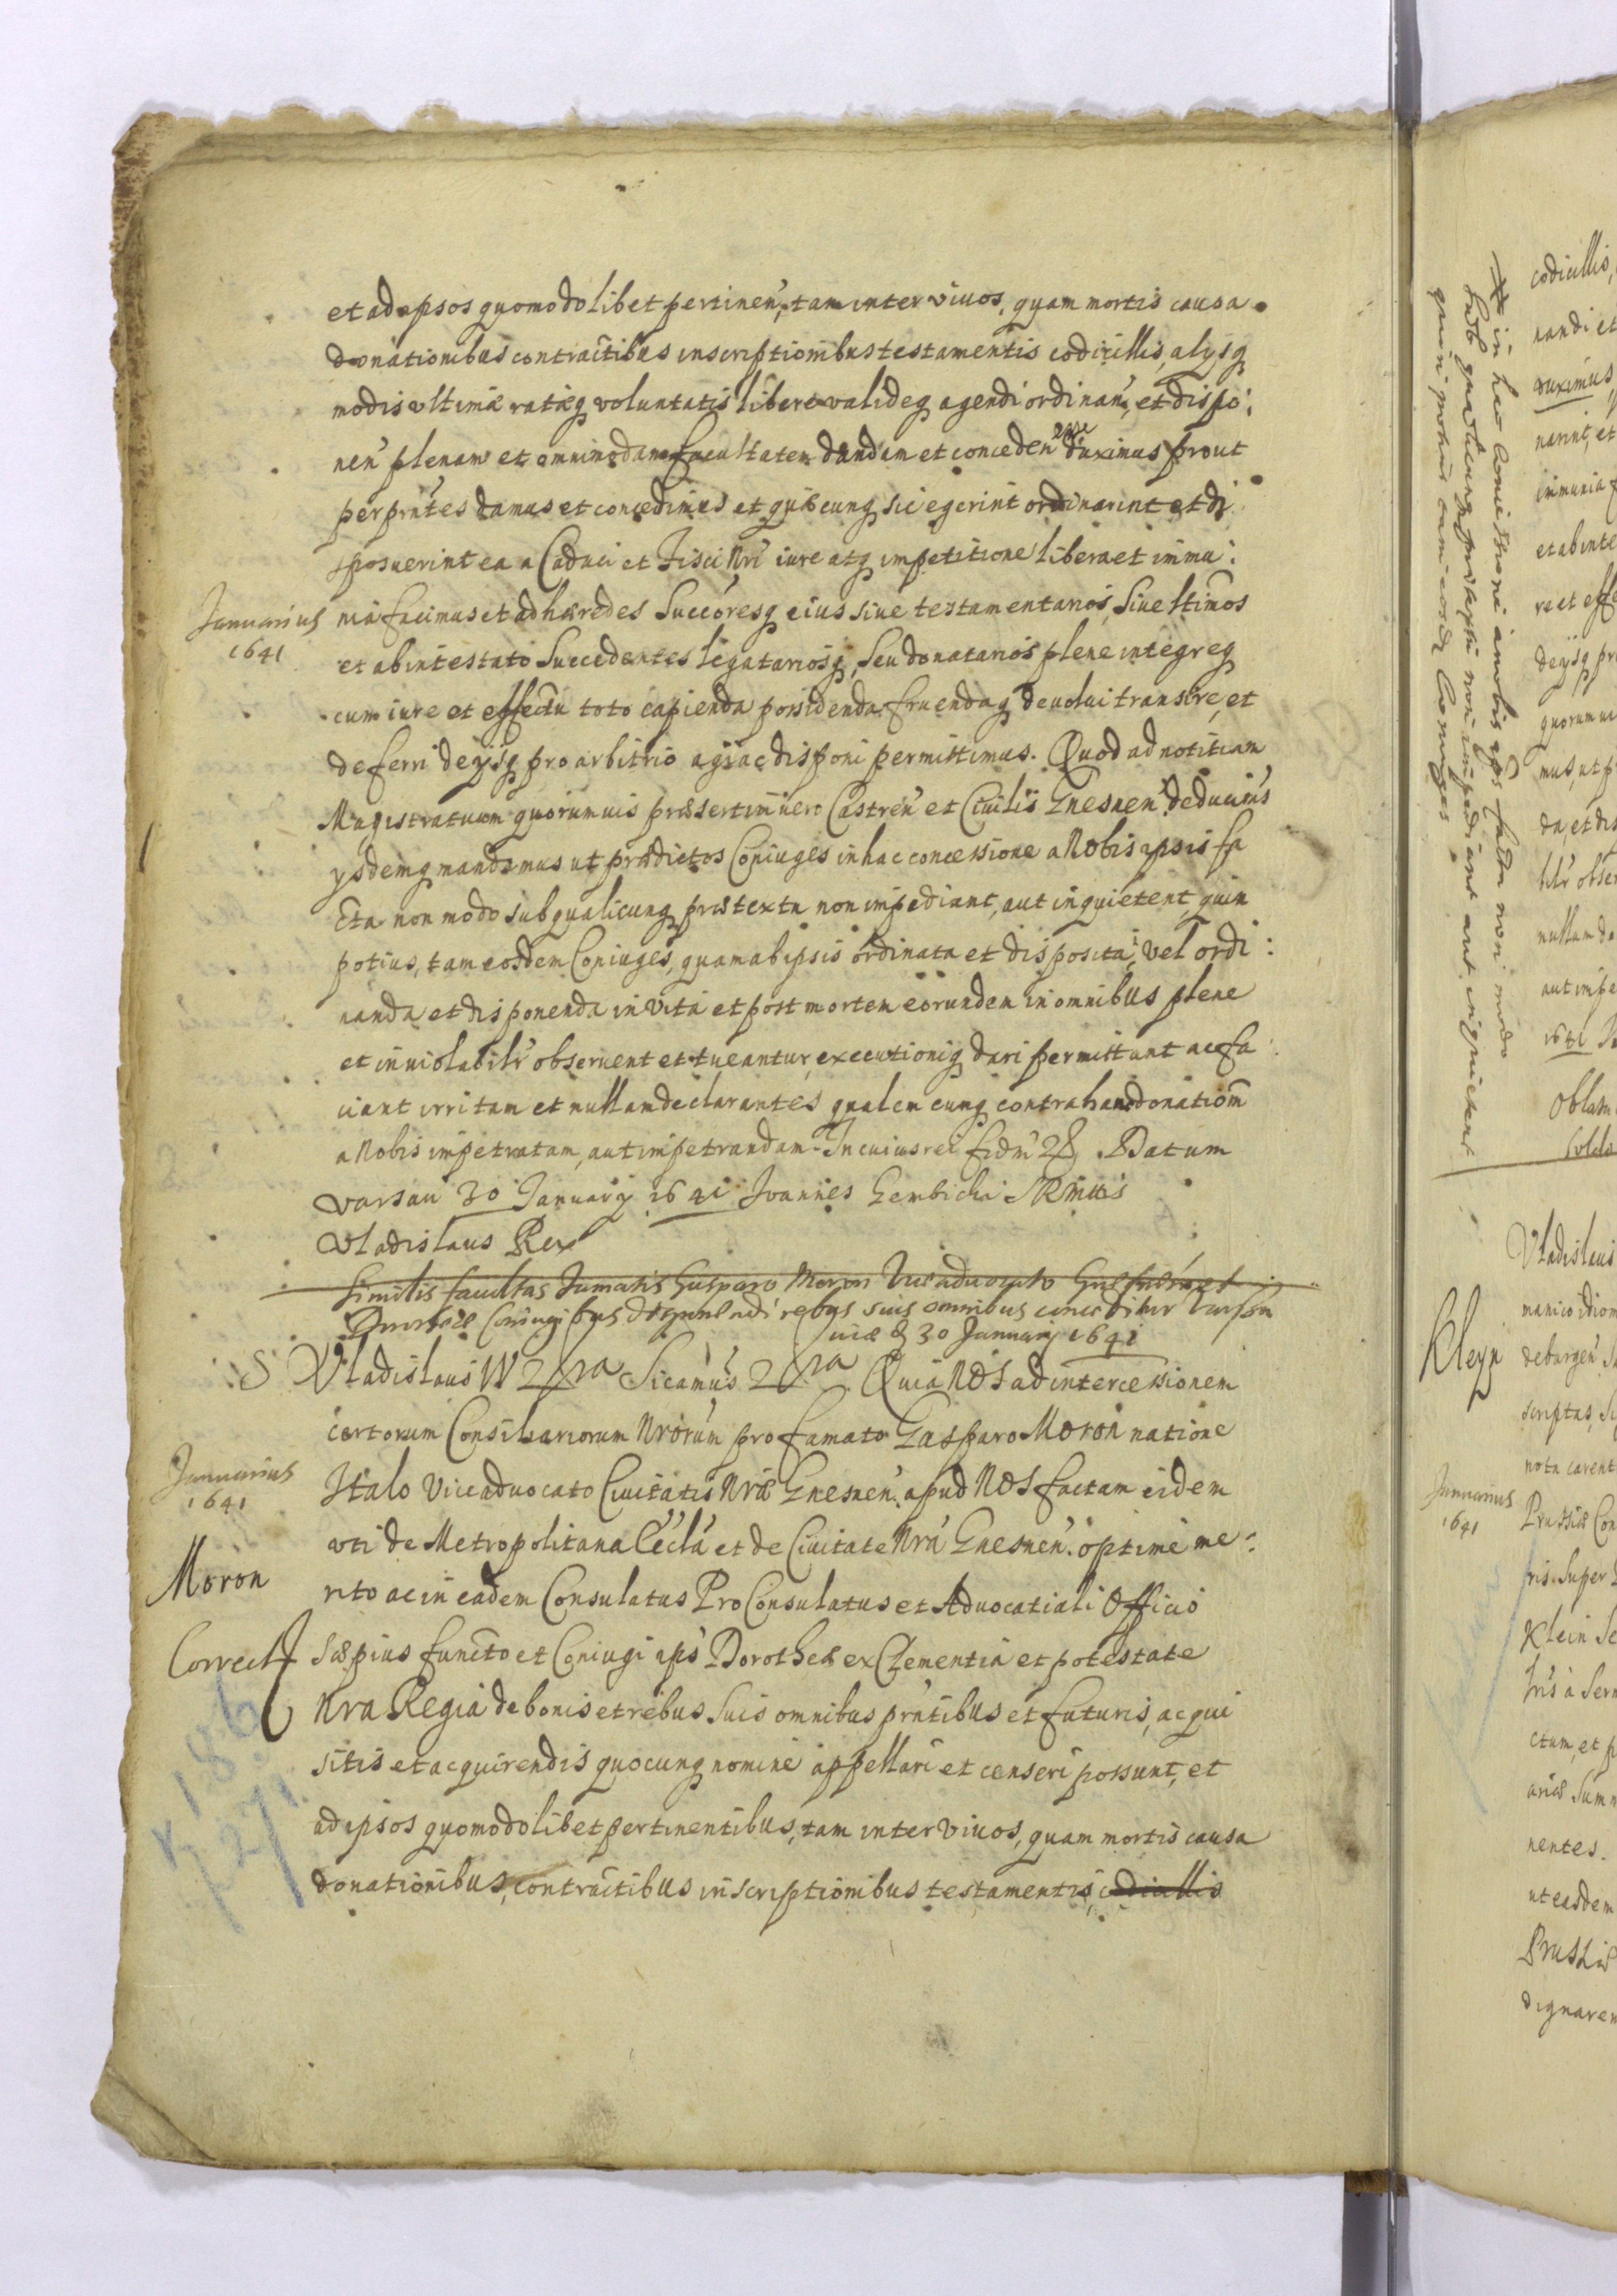 et ad ipsos quomodolibet pertinen̄, tam inter viuos, quam mortis causa
donationibus contractibus inscriptionibus testamentis codicillis, alysq
modis vltimæ ratæq voluntatis libere valideq agendi ordinan̄, et dispo:
nen̄ plenam et omnimodam facultatem dandam et conceden̄ esse duximus prout
per pn̄tes damus et concedimus et quæcunq sic egerint ordinarint et di
sposuerint ea a Caduci et Fisci Nr̄i iure atq impetitione libera et immu:
Januarius
1641
nia facimus et ad hæredes Succōresq eius siue testamentarios, siue ltimos
et ab intestato Succedentes legatariosq, seu donatarios plene integreq
cum iure et effectu toto capienda possidenda fruendaq deuolui transire, et
deferri deysq pro arbitrio agi ac disponi permittimus. Quod ad notitiam
Magistratuum quorumuis præsertim vero Castren̄ et Ciuilis Gnesnen̄ deducim̄s
ysdemq mandamus ut prædictos Coniuges in hac concessione a Nobis ipsis fa
cta non modo sub qualicunq prætextu non impediant, aut inquietent, quin
potius, tam eosdem Coniuges, quam ab ipsis ordinata et disposita, vel ordi:
nanda et disponenda in vita et post mortem eorundem in omnibus plene
et inuiolabilr̄ obseruent et tueantur, executioniq dari permittant ac fa
ciant irritam et nullam declarantes qualemcunq contrahanc donatiom̄
a Nobis impetratam, aut impetrandam. In cuius rei fidm̄ 2℞. Datum
Varsau 30 January 1641 Joannes Gembicki SRMttis
Vladislaus Rex
Similis facultas Gasparo Moron Viceaduocato Gnesnen̄ et
Dorotheæ Coniugibus disponendi rebus suis omnibus conceditur Varsa
uiæ d 30 Januarij 1641
S Vladislaus IV 2℞ra Sicamus 2℞ra Quia NOS ad intercessionem
certorum Consiliariorum Nr̄orum pro famato Gasparo Moron natione
Januarius
1641
Italo Viceaduocato Ciuitatis Nr̄æ Gnesnen̄. apud NOS factam eidem
vti de Metropolitana Ecc̄la et de Ciuitate Nr̄a Gnesnen̄. optime me:
Moron
rito ac in eadem Consulatus ProConsulatus et Aduocatiali Officio
Correct
sæpius functo et Coniugi ips̄ Dorotheæ ex Clementia et potestate
Nra Regia de bonis et rebus suis omnibus pn̄tibus et futuris, acqui
sitis et acquirendis quocunq nomine appellari et censeri possunt, et
ad ipsos quomodolibet pertinentibus, tam inter viuos, quam mortis causa
donationibus, contractibus inscriptionibus testamentis, codicillis
in hac concessione a nobis ipsis facta non modo
sub qualicunq prætextu non impediant aut inquietent
quin potius tam eosdem Coniuges
codicillis,
nandi et
duximus,
narint, et
immunia f
et ab inte
re et effe
deysq pr
quorumui
mus, ut p
da, et dis
bilr̄ obser
nullam de
aut impe
1641
Vladislaus
manico idiom
Kleyn
scriptas, Si
nota carent
Januarius
1641
Prussiæ Con
ris. Super
Klein Se
ctum, et p
nentes.
ut easdem
Prussiæ
dignarem